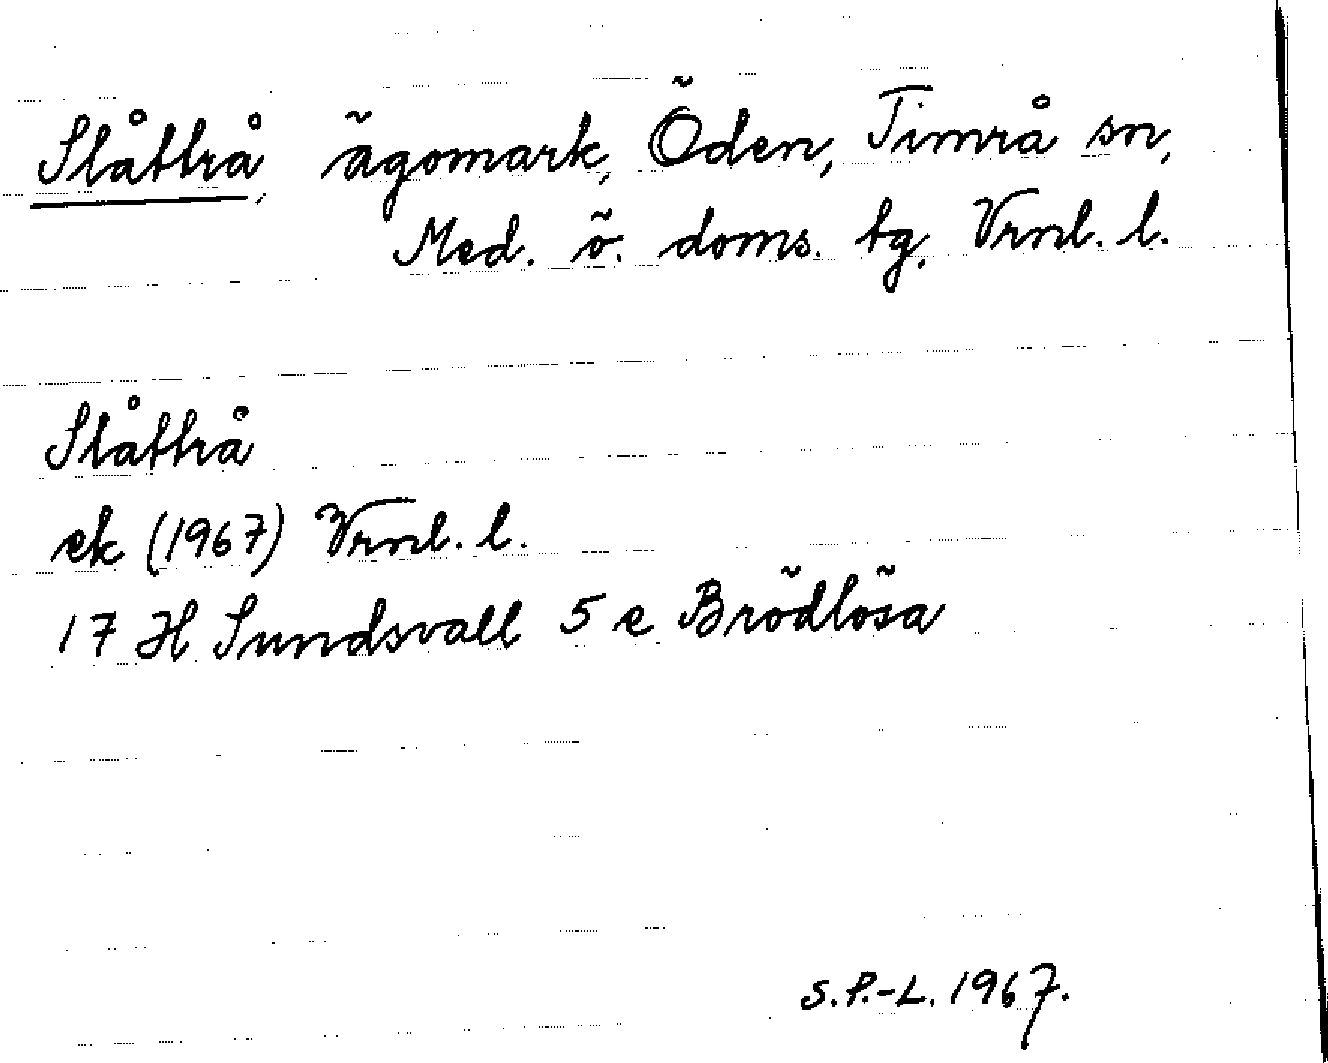 Slåttrå, ägomark, Öden, Timrå sn,
Med. ö. doms. tg. Vrnl. l.
Slåttrå
ek (1967) Vrnl. l.
17 H Sundsvall 5 e Brödlösa
S.P.-L. 1967.